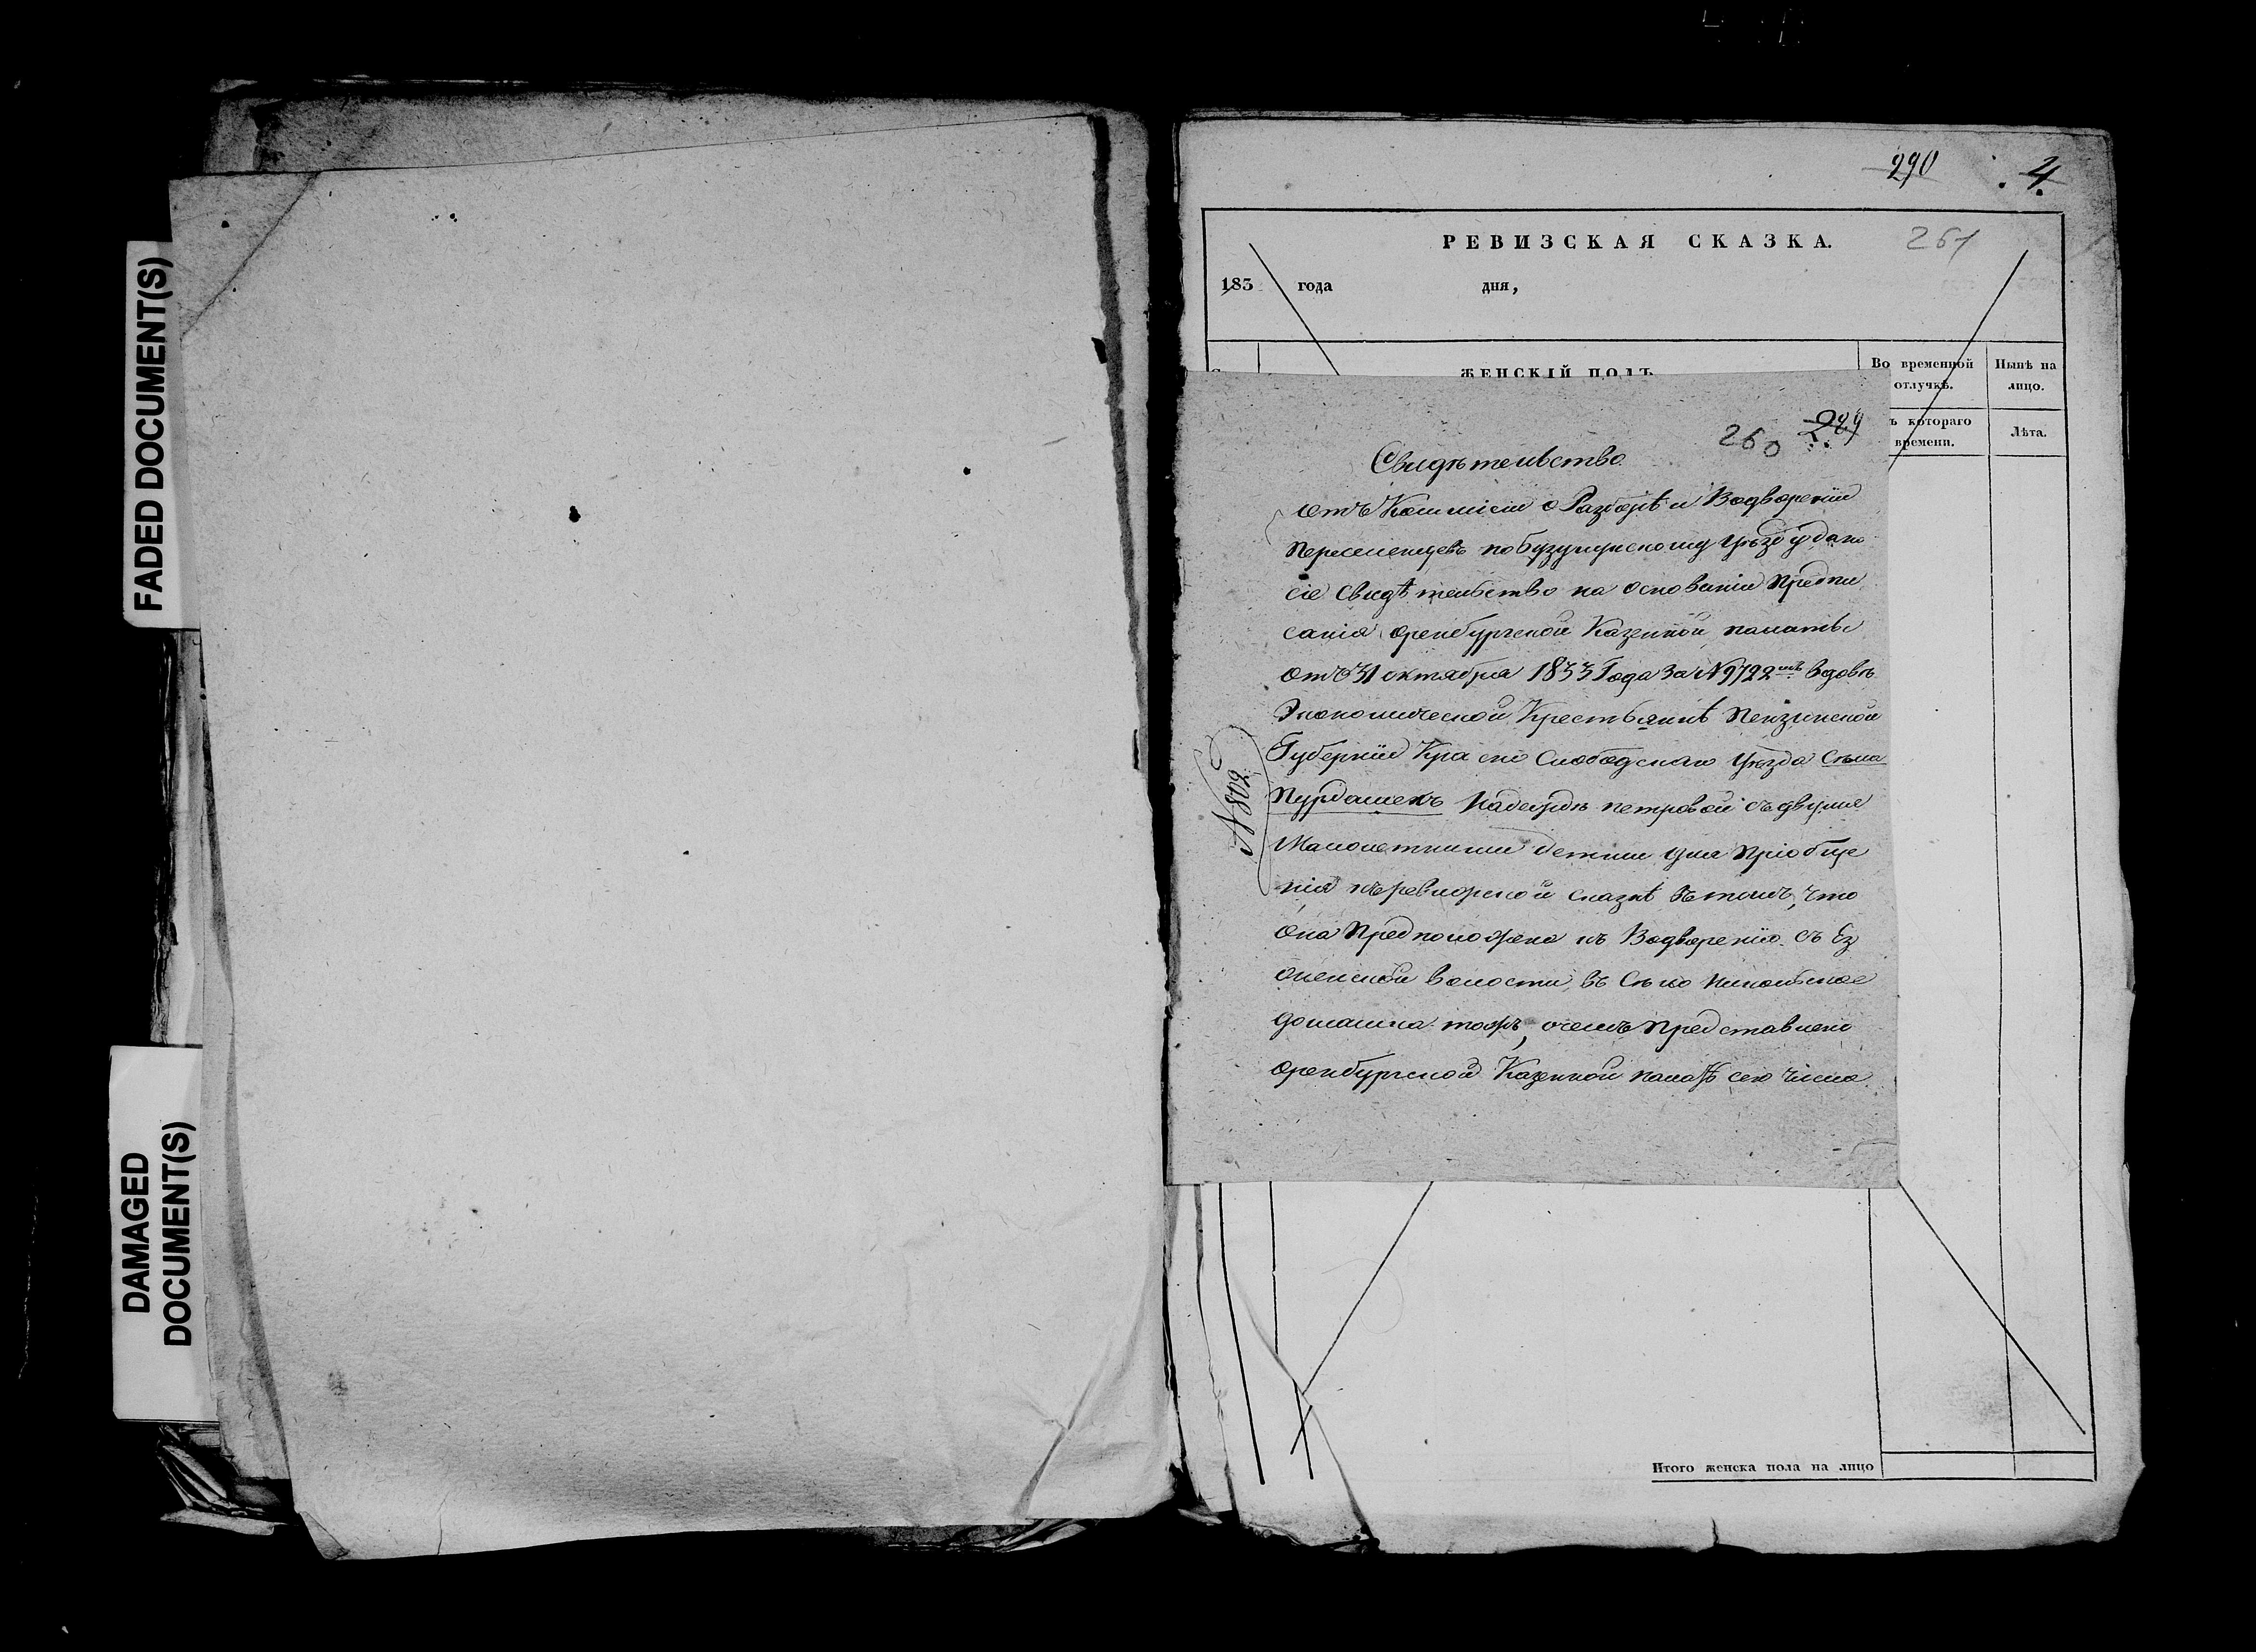 FADED DOCUMENT(S)
DAMAGED
DOCUMENT(S)
290 4
РЕВИЗСКАЯ СКАЗКА. 261
183 года дня,
ЖЕНСКІЙ ПОЛЪ
Во временной
отлучкѣ.
Нынѣ на
лицо.
ъ котораго
времени.
Лѣта.
260 289
Свидѣтельство
отъ Коммисіи о Разборѣ и Водвореніи
Переселенцевъ по бузулукскому уѣзду дано
сіе свидѣтельство на основаніи Предпи
санія оренбургской Казенной палаты
отъ 31 октября 1833 Года За N 9722мъ вдовѣ
Экономической Крестьянкѣ Пензинской
Губерніи Красно Слободскаго уѣзда Села
Пурдошекъ Надеждѣ петровой съ двумя
Малолетними детьми для Пріобще
нія къ ревизской сказкѣ въ томъ, что
она Предположена къ Водворенію съ
волости, въ Село Никольское
тожъ, очемъ Представлено
оренбургской Казенной палатѣ сего числа
N 802
Итого женска пола на лицо